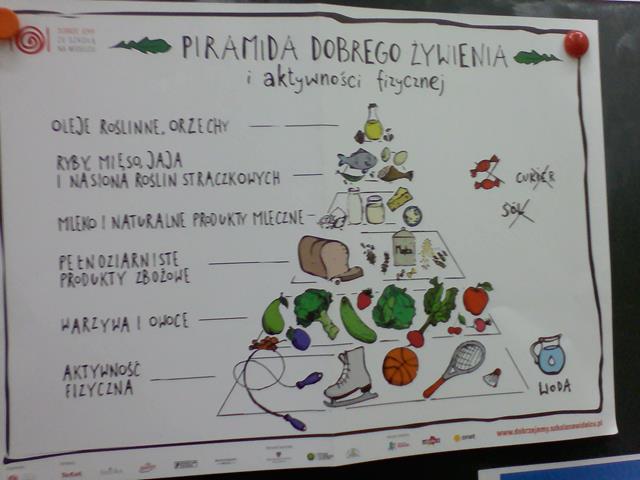 DOBRZE JEMY
ZE SZKOŁĄ
NA WIDELCU
PIRAMIDA DOBREGO ŻYWIENIA
i aktywności fizycznej
OLEJE ROŚLINNE, ORZECHY
RYBY, MIĘSO, JAJA
I NASIONA ROŚLIN STRĄCZKOWYCH
CUKIER
SÓL
MLEKO I NATURALNE PRODUKTY MLECZNE
PEŁNOZIARNISTE
PRODUKTY ZBOŻOWE
Mąka
WARZYWA I OWOCE
AKTYWNOŚĆ
FIZYCZNA
WODA
www.dobrzejemy.szkolanawidelcu.pl